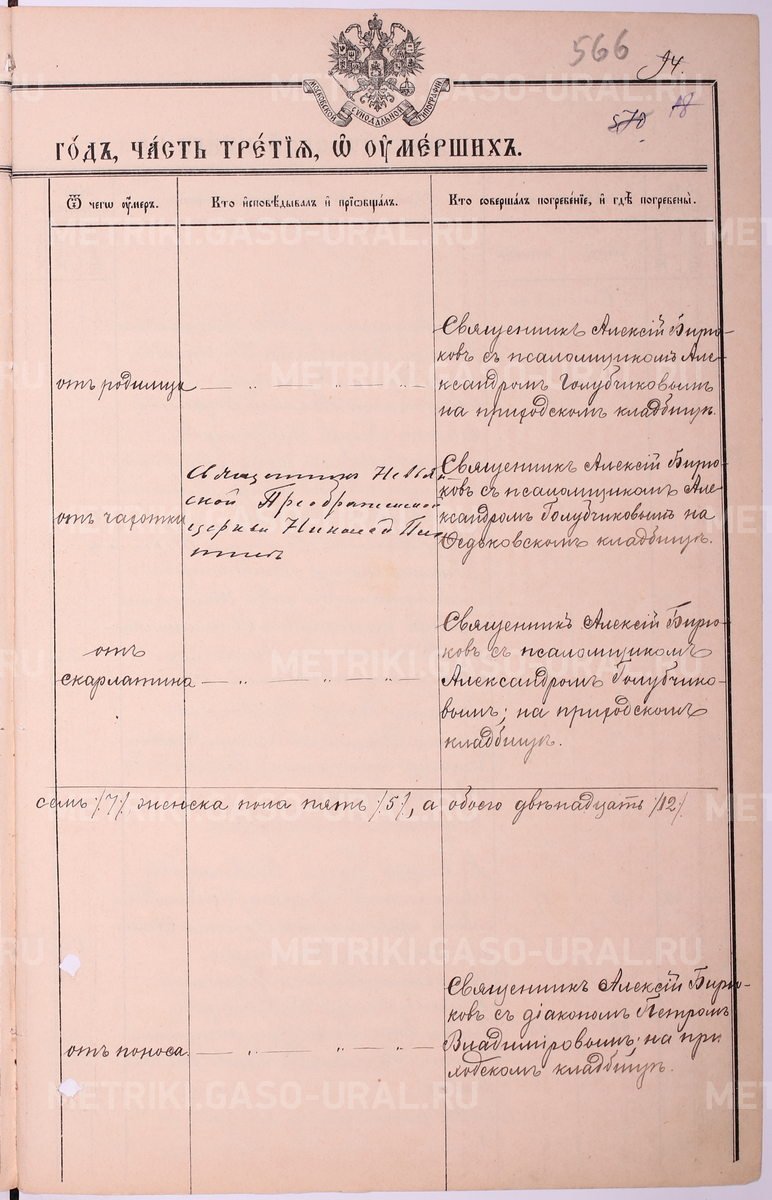 566
94.
570 18
МОСКОВСКОЙ СѴНОДАЛЬНОЙ ТИПОГРАФІИ
ГО́ДЪ, ЧА́СТЬ ТРЕ́ТІЯ, Ѡ ОУМЕ́РШИХЪ.
Ѿ чегѡ оумеръ.
Кто исповѣдывалъ и пріобщалъ.
Кто совершалъ погребеніе, и гдѣ погребены.
отъ родимца
Священникъ Алексій Бирю-
ковъ съ псаломщикомъ Але-
ксандромъ Голубчиковымъ
на приходскомъ кладбищѣ.
отъ чаротка
Священникъ Невьян
ской Преображенской
церкви Николай
Священникъ Алексій Бирю-
ковъ съ псаломщикомъ Але-
ксандромъ Голубчиковымъ на
Ѳедьковскомъ кладбищѣ.
отъ
скарлатина
Священникъ Алексій Бирю-
ковъ съ псаломщикомъ
Александромъ Голубчико-
вымъ; на приходскомъ
кладбищѣ.
семь /7/. женска пола пять /5/, а обоего двѣнадцать /12/.
отъ поноса.
Священникъ Алексій Бирю-
ковъ съ діакономъ Петромъ
Владиміровымъ; на при
ходскомъ кладбищѣ.
METRIKI.GASO-URAL.RU